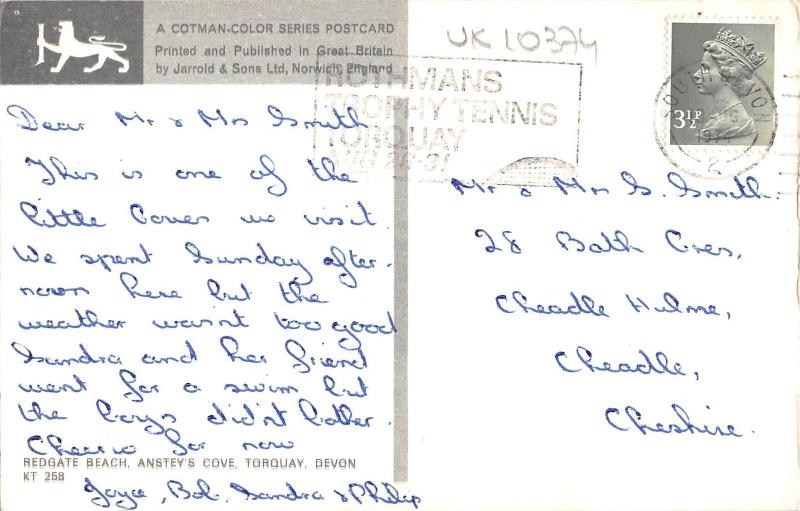 A COTMAN-COLOR SERIES POSTCARD
Printed and Published in Great Britain
by Jarrold & Sons Ltd, Norwich, England
UK 10374
ROTHMANS
TROPHY TENNIS
TORQUAY
AUG 26-31
SOUTH DEVON
3½P
Dear Mr & Mrs Smith
This is one of the
little Coves we visit.
We spent Sunday after-
noon here but the
weather wasn't too good
Sandra and her friend
went for a swim but
the boys didn't bother.
Cheerio for now
REDGATE BEACH, ANSTEY'S COVE, TORQUAY, DEVON
KT 258
Joyce, Bob, Sandra & Philip
Mr & Mrs G. Smith.
28 Bath Cres,
Cheadle Hulme,
Cheadle,
Cheshire.